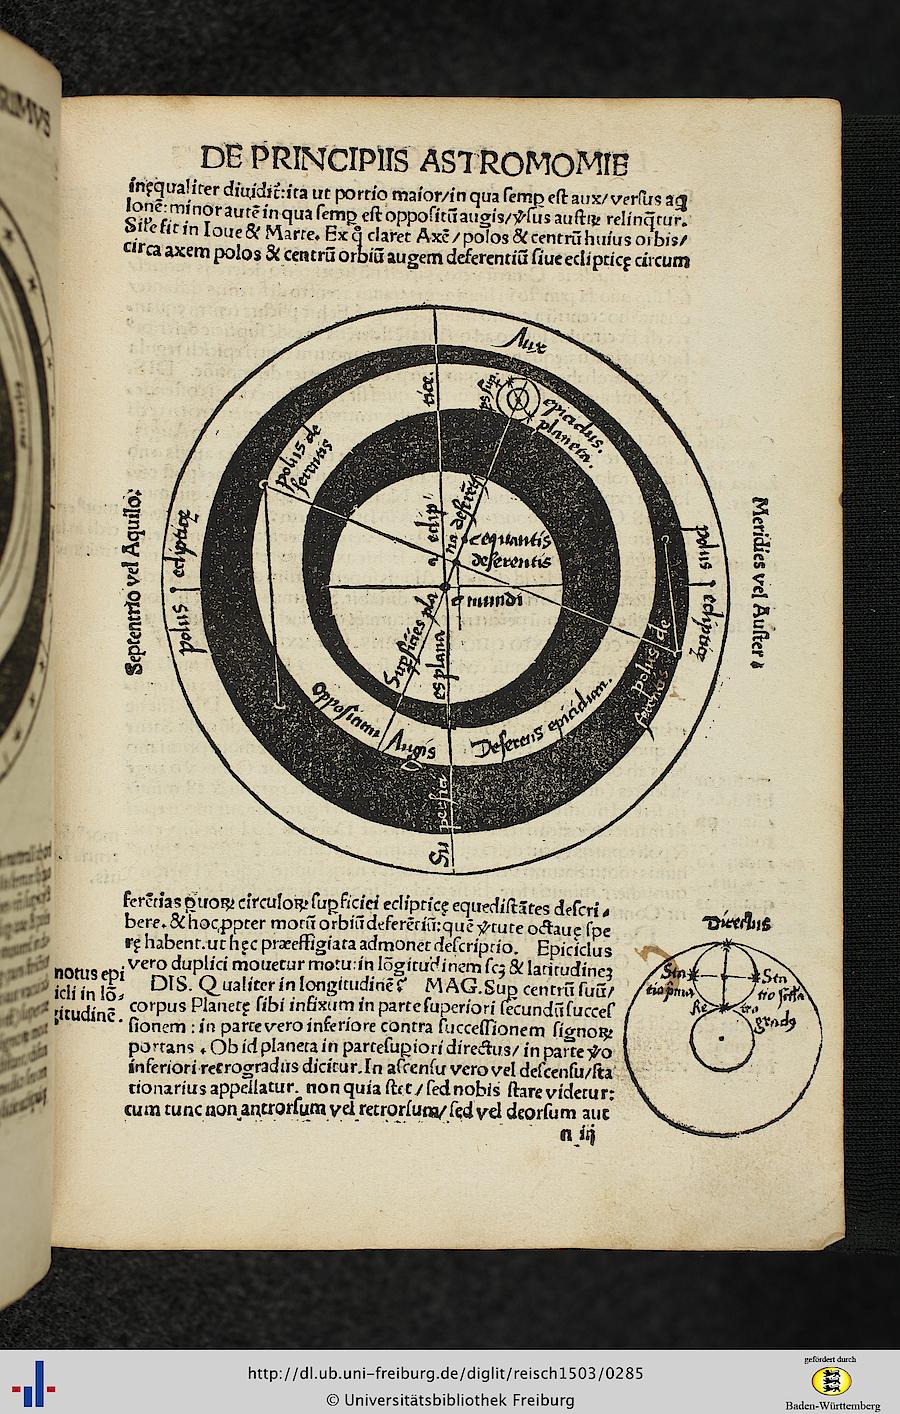 DE PRINCIPIIS ASTROMOMIE
inęqualiter diuidit̄: ita ut portio maior/in qua semp est aux/ versus aq
lonē: minor autē in qua semp est oppositū augis/ ꝟsus austrꝝ relinq̄tur.
Sił'e fit in Ioue & Marte. Ex q̊ claret Axē / polos & centrū huius orbis/
circa axem polos & centrū orbiū augem deferentiū siue eclipticę circum
Aux
tice.
ꝑs sup.
epiciclus.
planeta.
polus de
ferentis
Septentrio vel Aquilo.
Meridies vel Auster
polus eclipticę
polus eclipticę
eclip
na deferē
c equantis
deferentis
c mundi
Supficies pla
es plana
polus de
ferentis
Oppositum Augis
Deferens epiciclum.
Su perficí
ferētias duoꝝ circuloꝝ supficiei eclipticę equedistātes descri
bere. & hoc ꝓpter motū orbiū deferētiū: quē ꝟtute octauę spe
rę habent. ut hęc præeffigiata admonet descriptio. Epiciclus
vero duplici mouetur motu: in lōgitudinem scꝫ & latitudineꝫ
DIS. Qualiter in longitudinē? MAG. Sup centrū suū/
corpus Planetę sibi infixum in parte superiori secundū succes
sionem : in parte vero inferiore contra successionem signoꝝ
portans . Ob id planeta in parte supiori directus/ in parte ꝟo
inferiori retrogradus dicitur. In ascensu vero vel descensu/ sta
tionarius appellatur. non quia stet / sed nobis stare videtur:
cum tunc non antrorsum vel retrorsum/ sed vel deorsum aut
n iij
notus epi
icli in lō-
gitudinē.
Directus
Sta
tio prima
Sta
tio scđa
Re tro
gradꝰ
http://dl.ub.uni-freiburg.de/diglit/reisch1503/0285
© Universitätsbibliothek Freiburg
gefördert durch
Baden-Württemberg